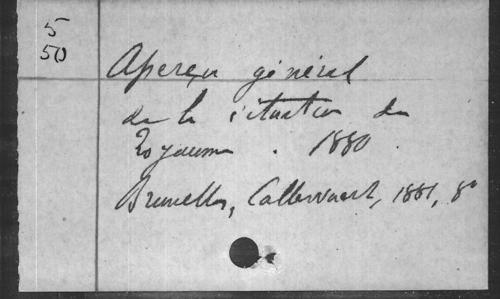 5
50
Aperçu général
de la situation du
Royaume. 1880.
Bruxelles, Callewaert, 1881, 8º